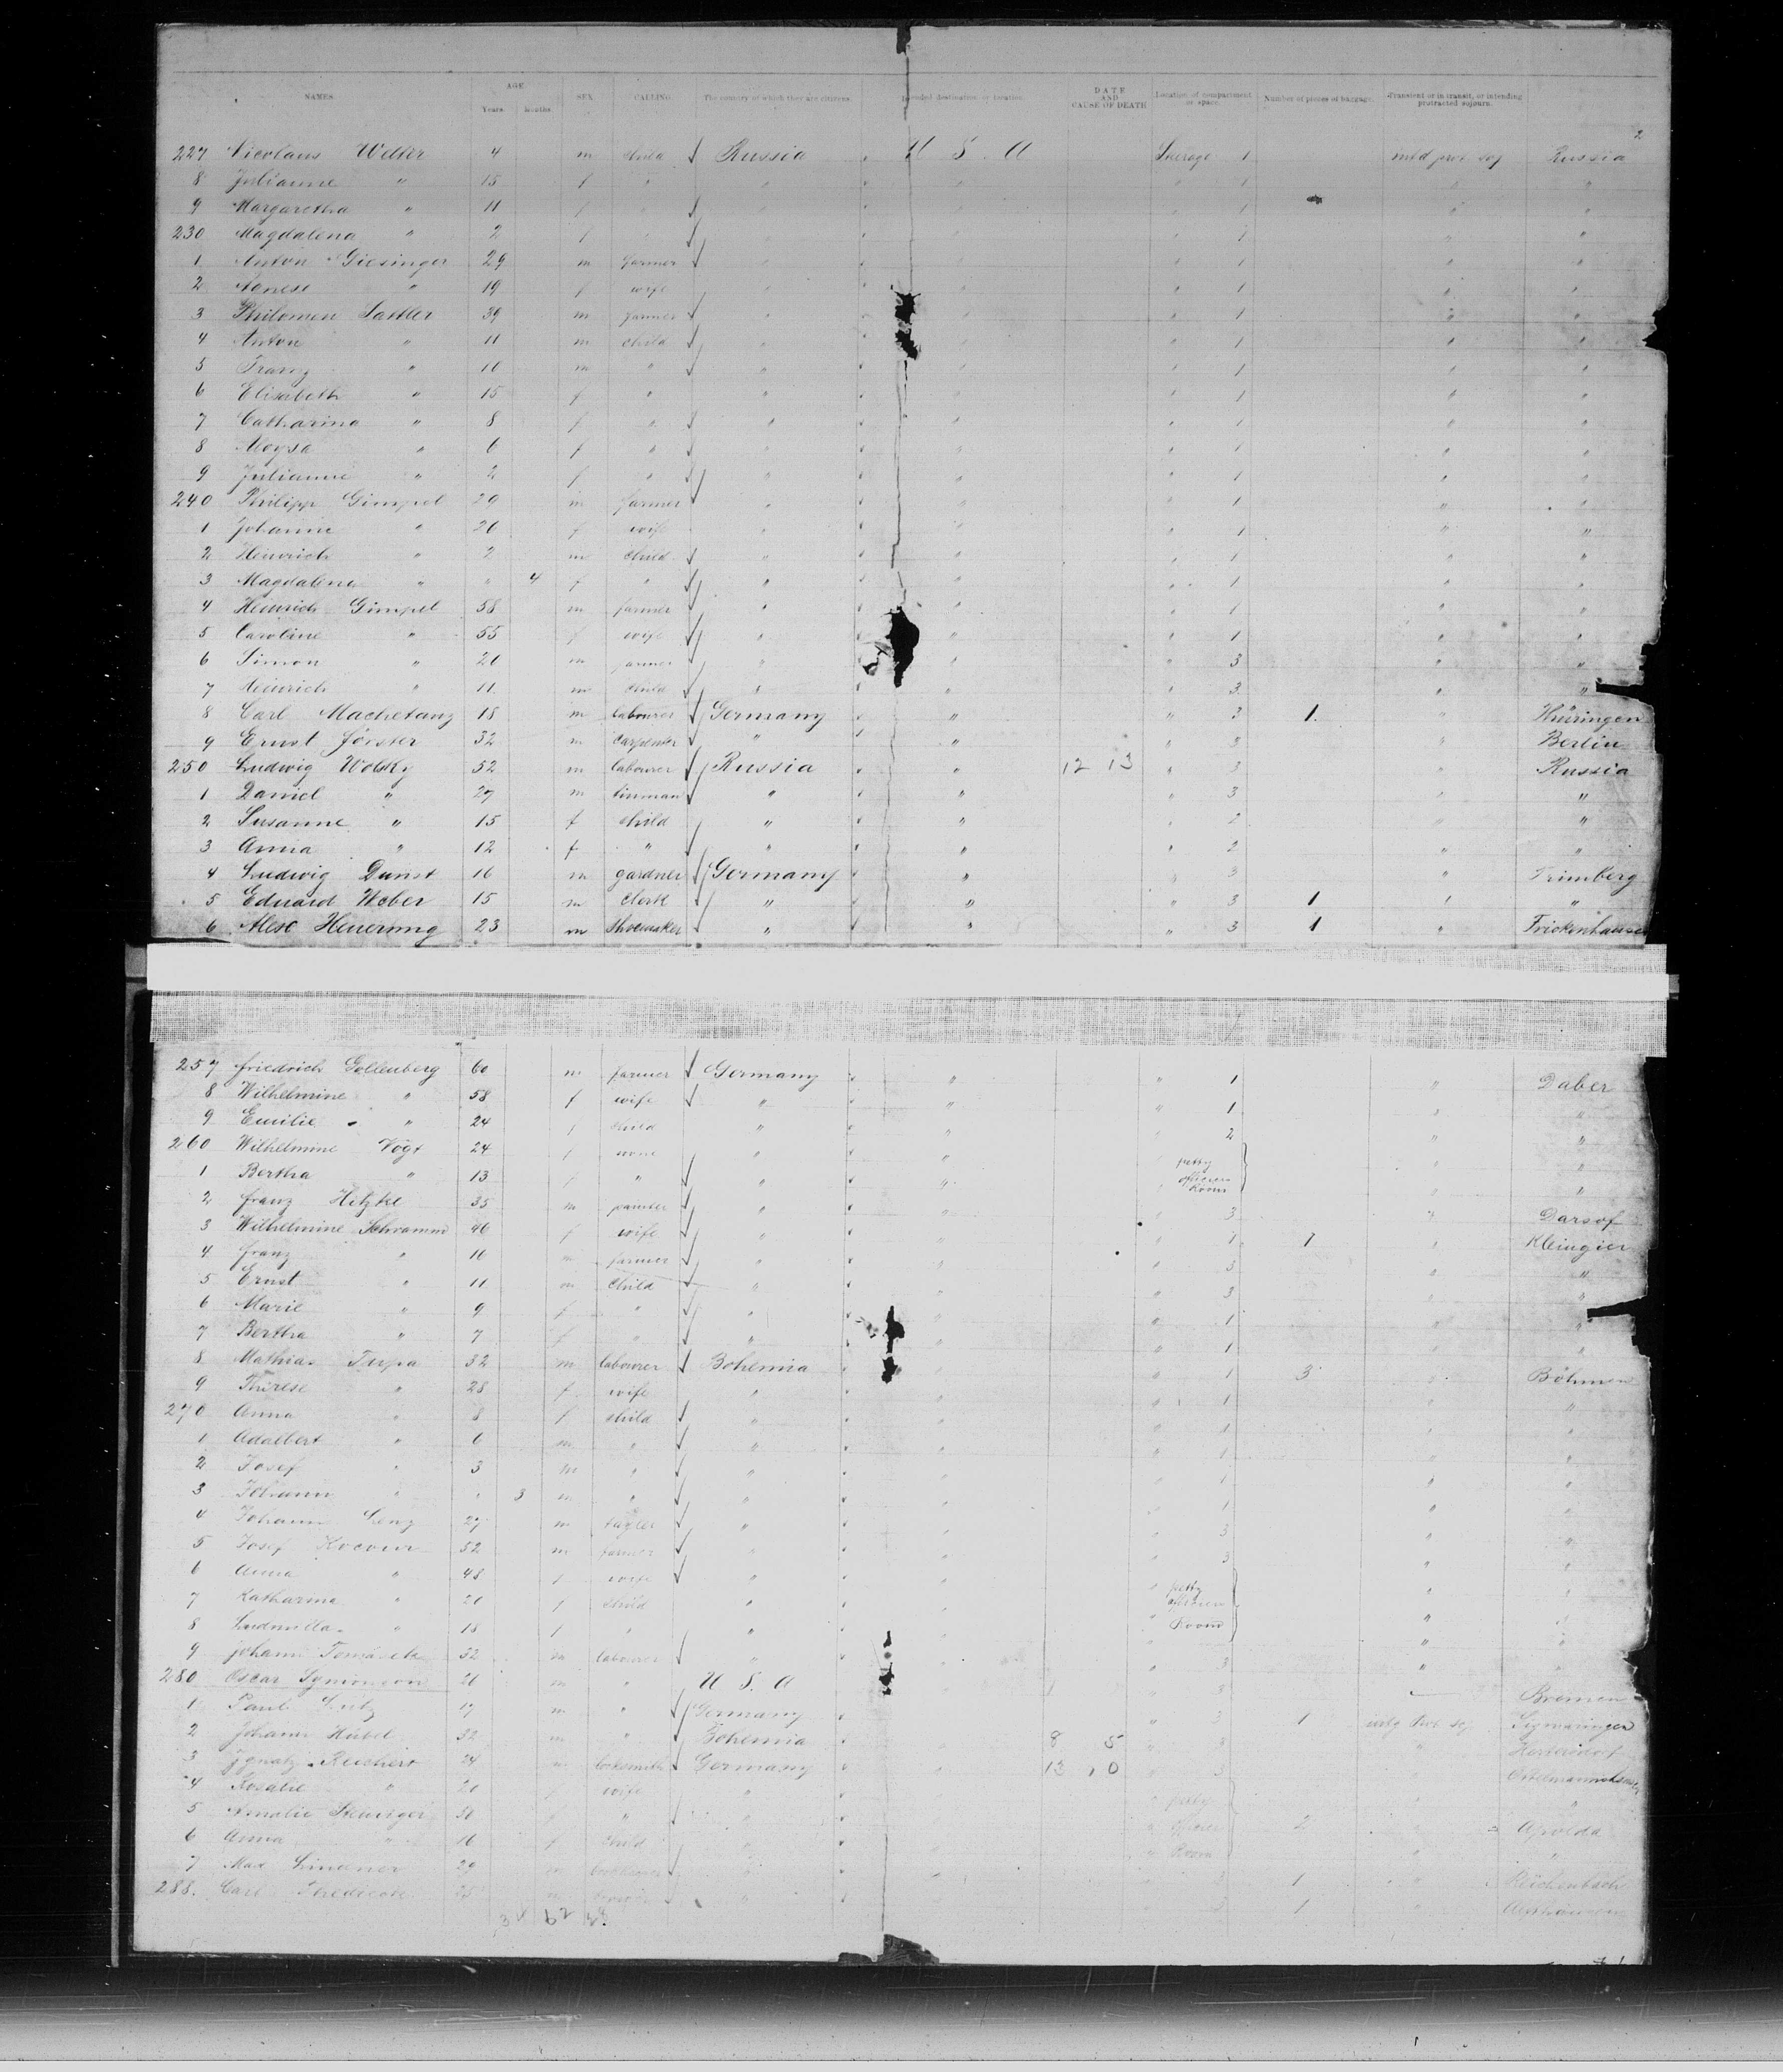 NAMES. AGE Years. Months. SEX. CALLING. The country of which they are citizens. Intended destination or location. DATE AND CAUSE OF DEATH Location of compartment or space. Number of pieces of baggage. Transient or in transit, or intending protracted sojourn.
2
227 Nicolaus Welter 4 m child Russia U S. A Steerage 1 intd prot soj Russia
8 Julianne " 15 f " " " " 1 " "
9 Margaretha " 11 f " " " " 1 " "
230 Magdalena " 2 f " " " " 1 " "
1 Anton Giesinger 29 m farmer " " " 1 " "
2 Agnese " 19 f wife " " " 1 " "
3 Philomen Sattler 39 m farmer " " " 1 " "
4 Anton " 11 m child " " " 1 " "
5 Franz " 10 m " " " " 1 " "
6 Elisabeth " 15 f " " " " 1 " "
7 Catharina " 8 f " " " " 1 " "
8 Aloysa " 6 f " " " " 1 " "
9 Julianne " 2 f " " " " 1 " "
240 Philipp Gimpel 29 m farmer " " " 1 " "
1 Johanne " 26 f wife " " " 1 " "
2 Heinrich " 2 m child " " " 1 " "
3 Magdalena " " 4 f " " " " 1 " "
4 Heinrich Gimpel 58 m farmer " " " 1 " "
5 Caroline " 55 f wife " " " 1 " "
6 Simon " 20 m farmer " " " 3 " "
7 Heinrich " 11 m child " " " 3 " "
8 Carl Machetanz 18 m labourer Germany " " 3 1 " Thüringen
9 Ernst Förster 32 m carpenter " " " 3 " Berlin
250 Ludwig Wolsky 52 m labourer Russia " 12 13 " 3 " Russia
1 Daniel " 27 m " " " 3 " "
2 Susanne " 15 f child " " " 2 " "
3 Anna " 12 f " " " " 2 " "
4 Ludwig Dunst 16 m gardner Germany " " 3 " Trimberg
5 Eduard Weber 15 m Clerk " " " 3 1 " "
6 Alex Heuerung 23 m shoemaker " " " 3 1 " Frickenhausen
257 Friedrich Gollenberg 60 m farmer Germany " " 1 " Daber
8 Wilhelmine " 58 f wife " " " 1 " "
9 Emilie " 24 f child " " " 2 " "
260 Wilhelmine Vogt 24 f none " " petty " "
1 Bertha " 13 f " " " officers Room " "
2 Franz Hitzke 35 m " " " 3 " Darsof
3 Wilhelmine Schramm 40 f wife " " " 1 1 " Kleingier
4 Franz " 16 m farmer " " " 3 " "
5 Ernst " 11 m child " " " 3 " "
6 Marie " 9 f " " " " 1 " "
7 Bertha " 7 f " " " " 1 " "
8 Mathias Tupa 32 m labourer Bohemia " " 1 3 " Böhmen
9 Therese " 28 f wife " " " 1 " "
270 Anna " 8 f child " " " 1 " "
1 Adalbert " 6 m " " " " 1 " "
2 Josef " 3 m " " " " 1 " "
3 Johann " " 3 m " " " " 1 " "
4 Johann Lenz 27 m " " " 3 " "
5 Josef Kocour 52 m farmer " " " 3 " "
6 Anna " 48 f wife " " " petty " "
7 Katharina " 20 f child " " " officers " "
8 Ludmilla " 18 f " " " " Room " "
9 Johann Tomasek 32 m labourer " " " 3 " "
280 Oscar Symonson 21 m " U S. A " " 3 Bremen
1 Paul Lutz 17 m " Germany " " 3 1 intg prot soj Sigmaringen
2 Johann Hübel 32 m " Bohemia " 8 5 " 3 "
3 Ignatz Reichert 24 m locksmith Germany " 13 , 0 " 3 "
4 Rosalie " 20 f wife " " petty " "
5 Amalie Steiniger 30 f " " " officer 2 " Apolda
6 Anna " 16 f child " " Room " "
7 Max Lindner 29 m " " 3 1 " Reichenbach
288. Carl m " " 3 1 "